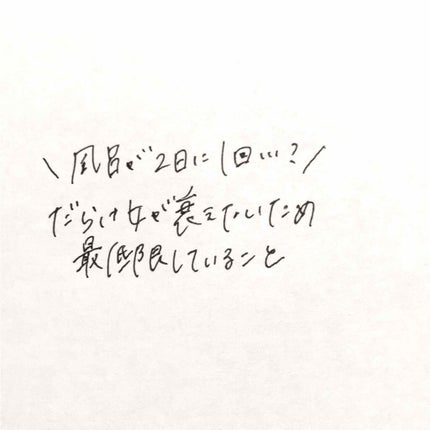 \ 風呂が2日に1回…?/
だらけ女が衰えないため
最低限していること